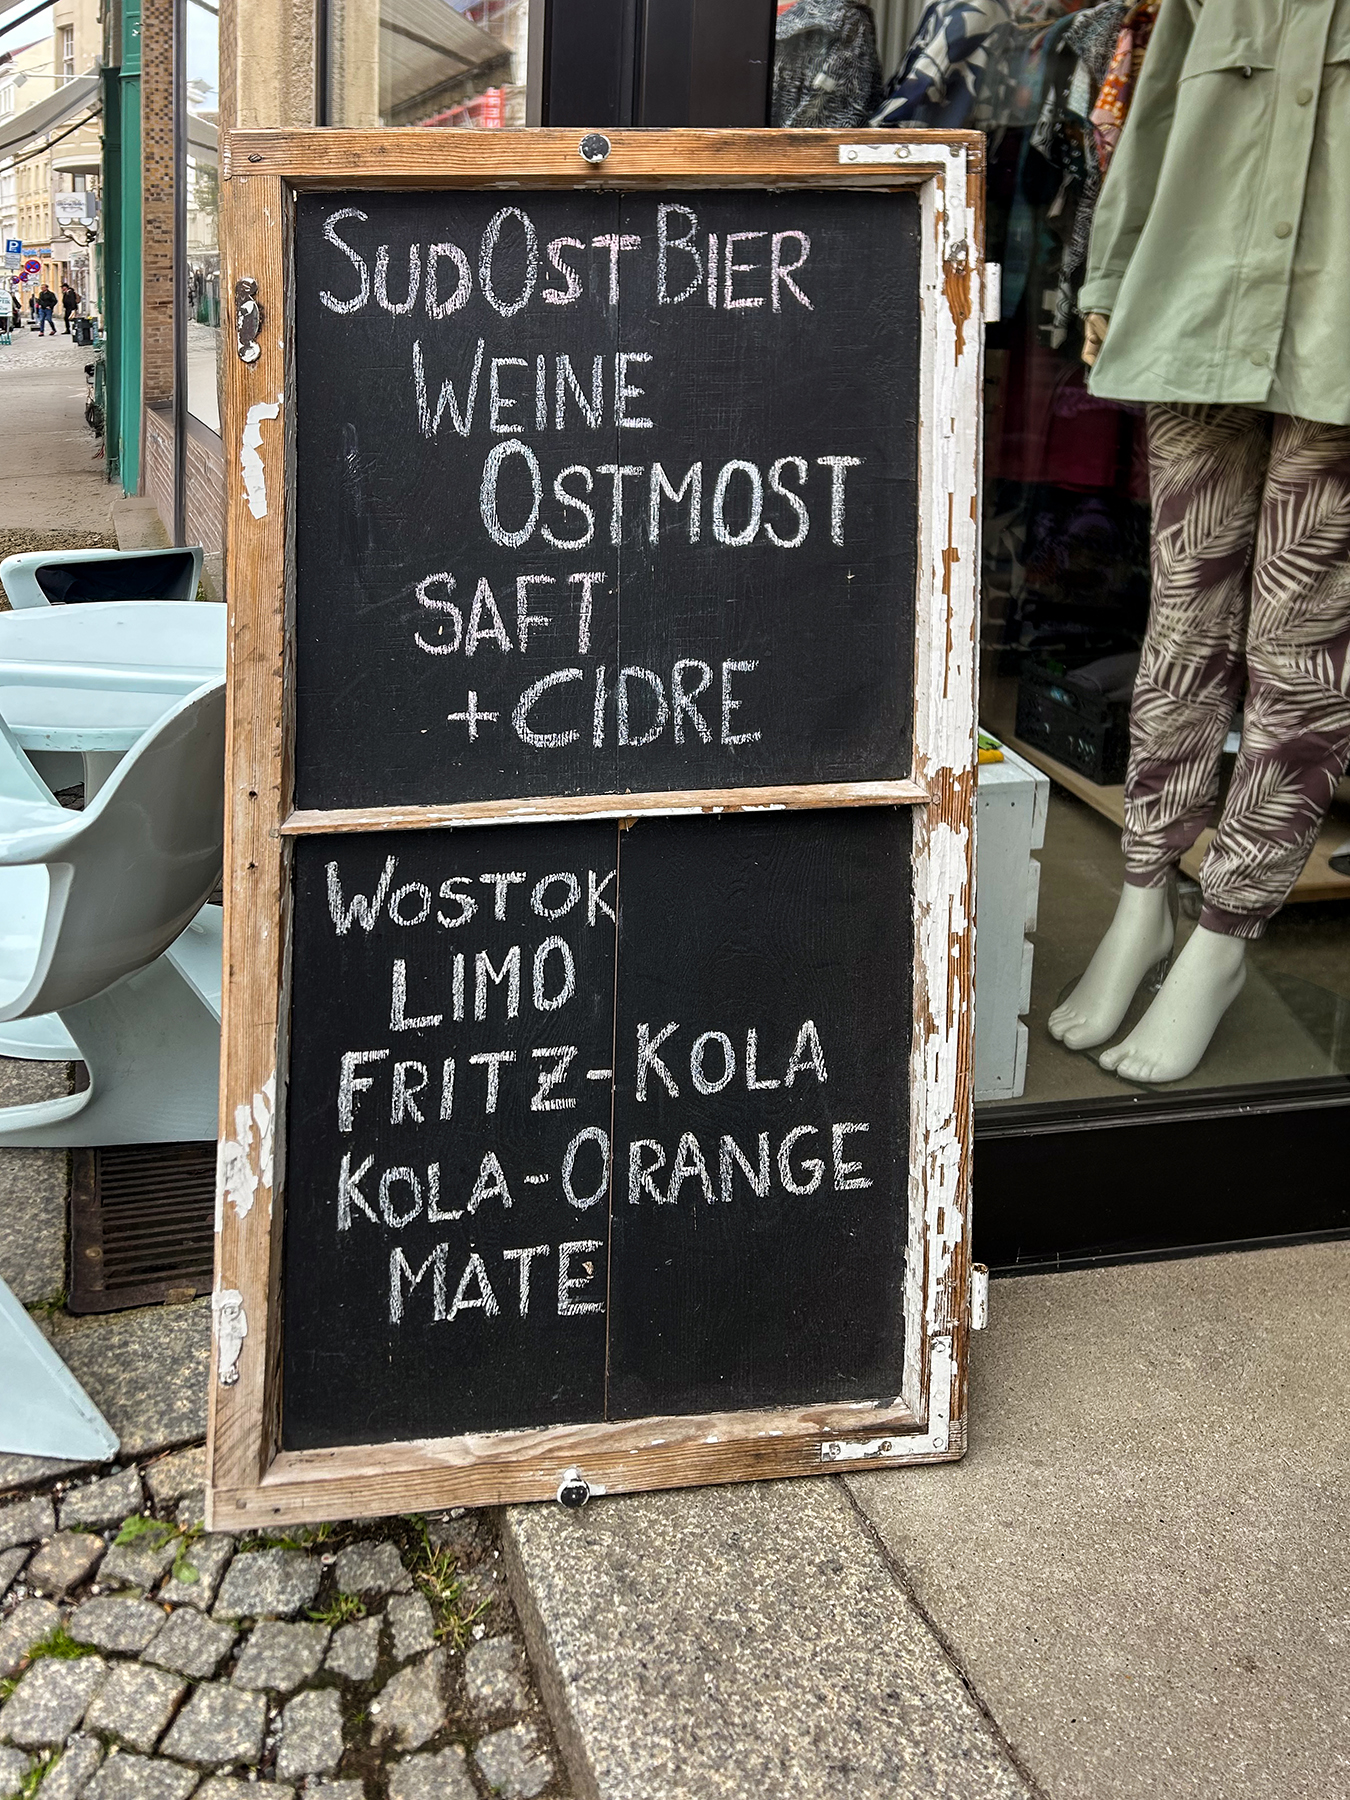 SUDOST BIER
WEINE
OSTMOST
SAFT
+ CIDRE
WOSTOK
LIMO
FRITZ-KOLA
KOLA-ORANGE
MATE
P